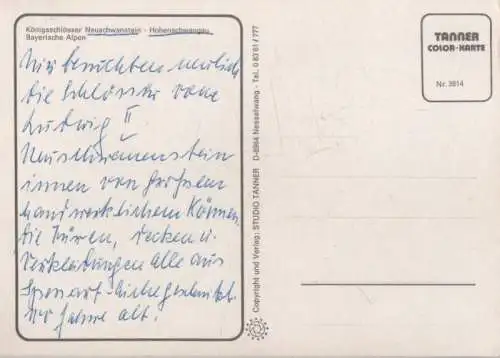 Königsschlösser Neuschwanstein - Hohenschwangau
Bayerische Alpen
Wir besuchten neulich
die Schlösser vom
Ludwig II
Neuschwanenstein
innen von großem
handwerklichem Können,
die Türen, Decken u.
Verkleidungen alle aus
geschnitzt
Jahre alt.
Copyright und Verlag: STUDIO TANNER D-8964 Nesselwang - Tel. 0 83 61 / 777
TANNER
COLOR-KARTE
Nr. 3614